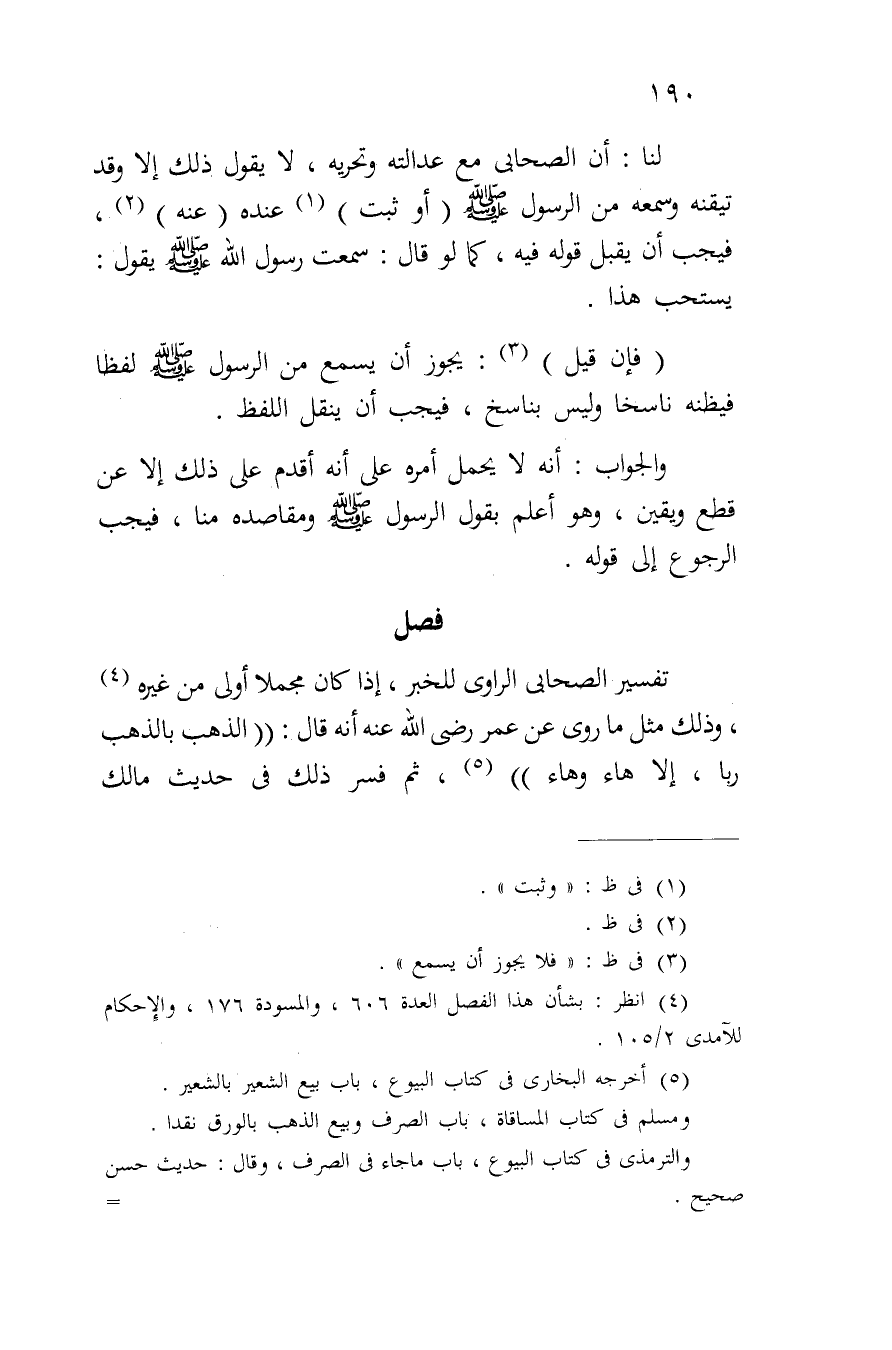 ١٩٠
لنا : أن الصحابى مع عدالته وتحريه ، لا يقول ذلك إلا وقد
تيقنه وسمعه من الرسول ﷺ ( أو ثبت ) (١) عنده ( عنه ) (٢) ،
فيجب أن يقبل قوله فيه ، كما لو قال : سمعت رسول الله ﷺ يقول :
يستحب هذا .
( فإن قيل ) (٣) : يجوز أن يسمع من الرسول ﷺ لفظا
فيظنه ناسخا وليس بناسخ ، فيجب أن ينقل اللفظ .
والجواب : أنه لا يحمل أمره على أنه أقدم على ذلك إلا عن
قطع ويقين ، وهو أعلم بقول الرسول ﷺ ومقاصده منا ، فيجب
الرجوع إلى قوله .
فصل
تفسير الصحابى الراوى للخبر ، إذا كان مجملا أولى من غيره (٤)
، وذلك مثل ما روى عن عمر رضى الله عنه أنه قال : (( الذهب بالذهب
ربا ، إلا هاء وهاء )) (٥) ، ثم فسر ذلك فى حديث مالك
(١) فى ظ : « وثبت » .
(٢) فى ظ .
(٣) فى ظ : « فلا يجوز أن يسمع » .
(٤) انظر : بشأن هذا الفصل العدة ٦٠٦ ، والمسودة ١٧٦ ، والإحكام
للآمدى ١٠٥/٢ .
(٥) أخرجه البخارى فى كتاب البيوع ، باب بيع الشعير بالشعير .
ومسلم فى كتاب المساقاة ، باب الصرف وبيع الذهب بالورق نقدا .
والترمذى فى كتاب البيوع ، باب ماجاء فى الصرف ، وقال : حديث حسن
صحيح . =